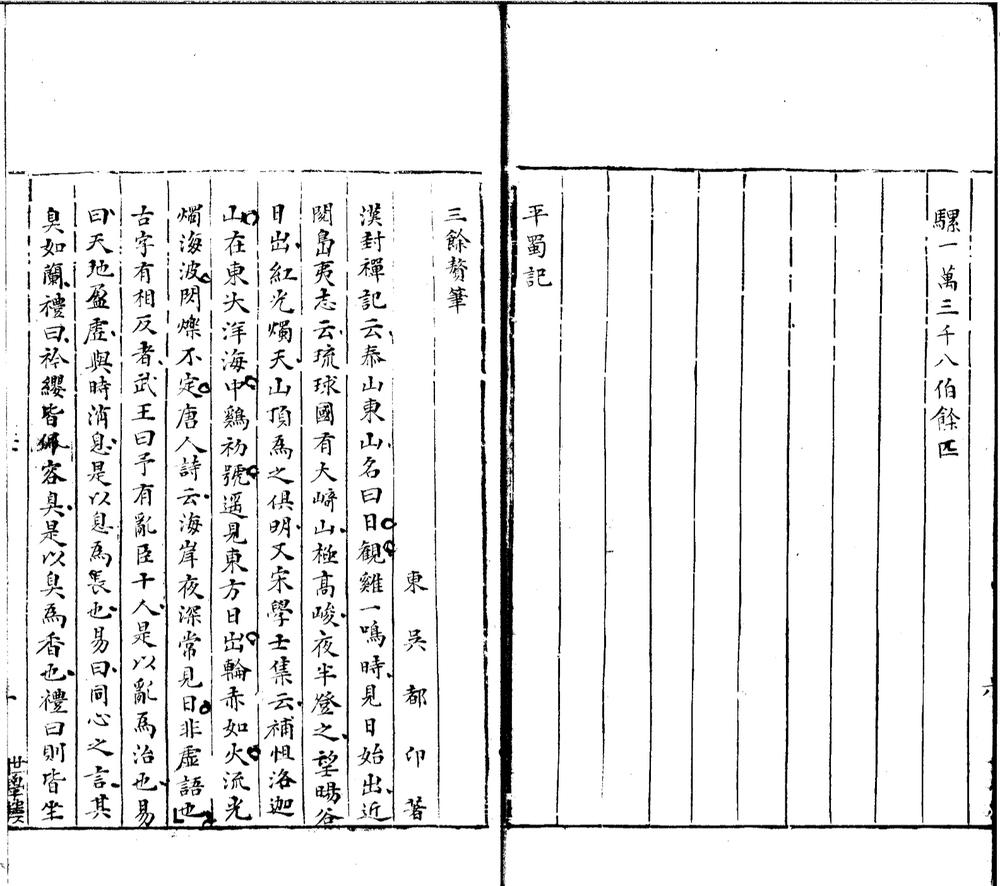 騾一萬三千八伯餘匹
平蜀記
三餘贅筆
東吳都卬著
漢封禪記云泰山東山名曰日觀雞一鳴時見日始出近
閱島夷志云琉球國有大崎山極高峻夜半登之望暘谷
日出紅光燭天山頂為之俱明又宋學士集云補怛洛迦
山在東大洋海中鷄初號遥見東方日出輪赤如火流光
燭海波閃爍不定唐人詩云海岸夜深常見日非虛語也
古字有相反者武王曰予有亂臣十人是以亂為治也易
曰天地盈虛與時消息是以息為長也易曰同心之言其
臭如蘭禮曰衿纓皆佩容臭是以臭為香也禮曰則皆坐
世學樓